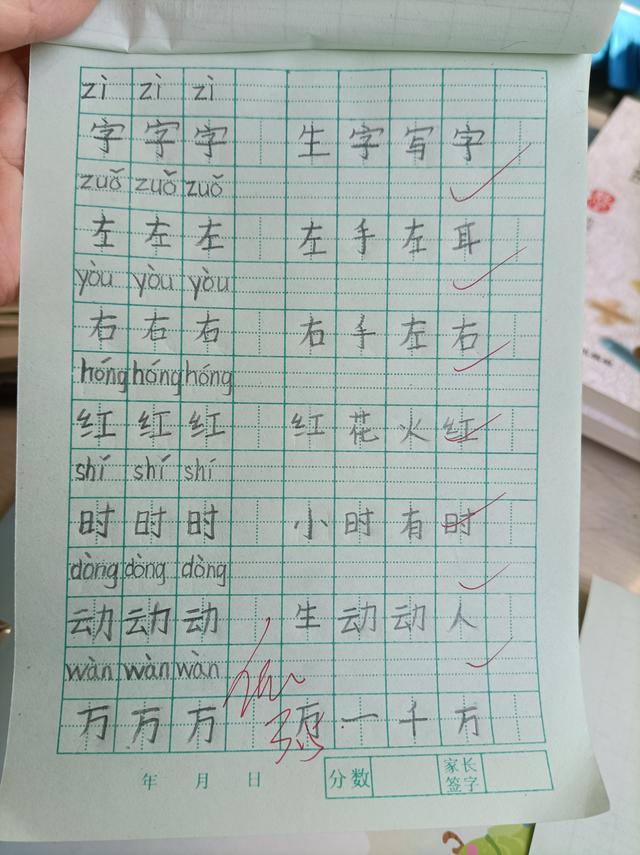 zì zì zì
字 字 字 生 字 写 字
zuǒ zuǒ zuǒ
左 左 左 左 手 左 耳
yòu yòu yòu
右 右 右 右 手 左 右
hóng hóng hóng
红 红 红 红 花 火 红
shí shí shí
时 时 时 小 时 有 时
dòng dòng dòng
动 动 动 生 动 动 人
wàn wàn wàn
万 万 万 万 一 千 万
年 月 日 分数 家长签字